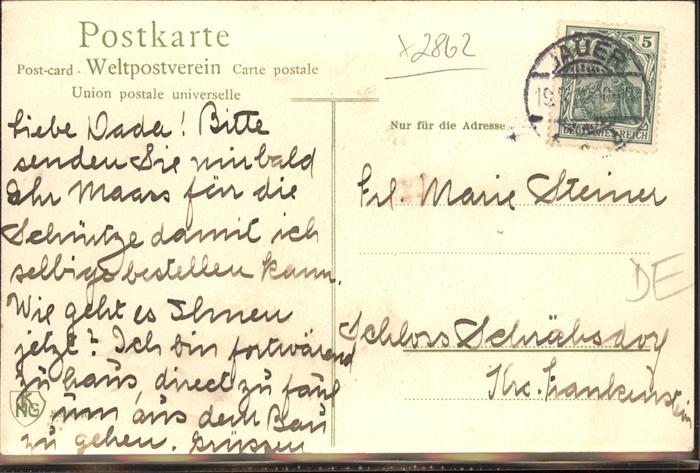 Postkarte
Post-card - Weltpostverein Carte postale
Union postale universelle
x2862
5
JAUER
DEUTSCHES REICH
Nur für die Adresse
Liebe Dada! Bitte
senden Sie mir bald
Ihr Maass für die
Schürtze damit ich
selbige bestellen kann.
Wie geht es Ihnen
jetzt? Ich bin fortwärend
zu haus, direct zu faul
um aus dem Bau
zu gehen. Grüssen
Frl. Marie Steiner
Schloss Schräbsdorf
Krs. Frankenstein
DE